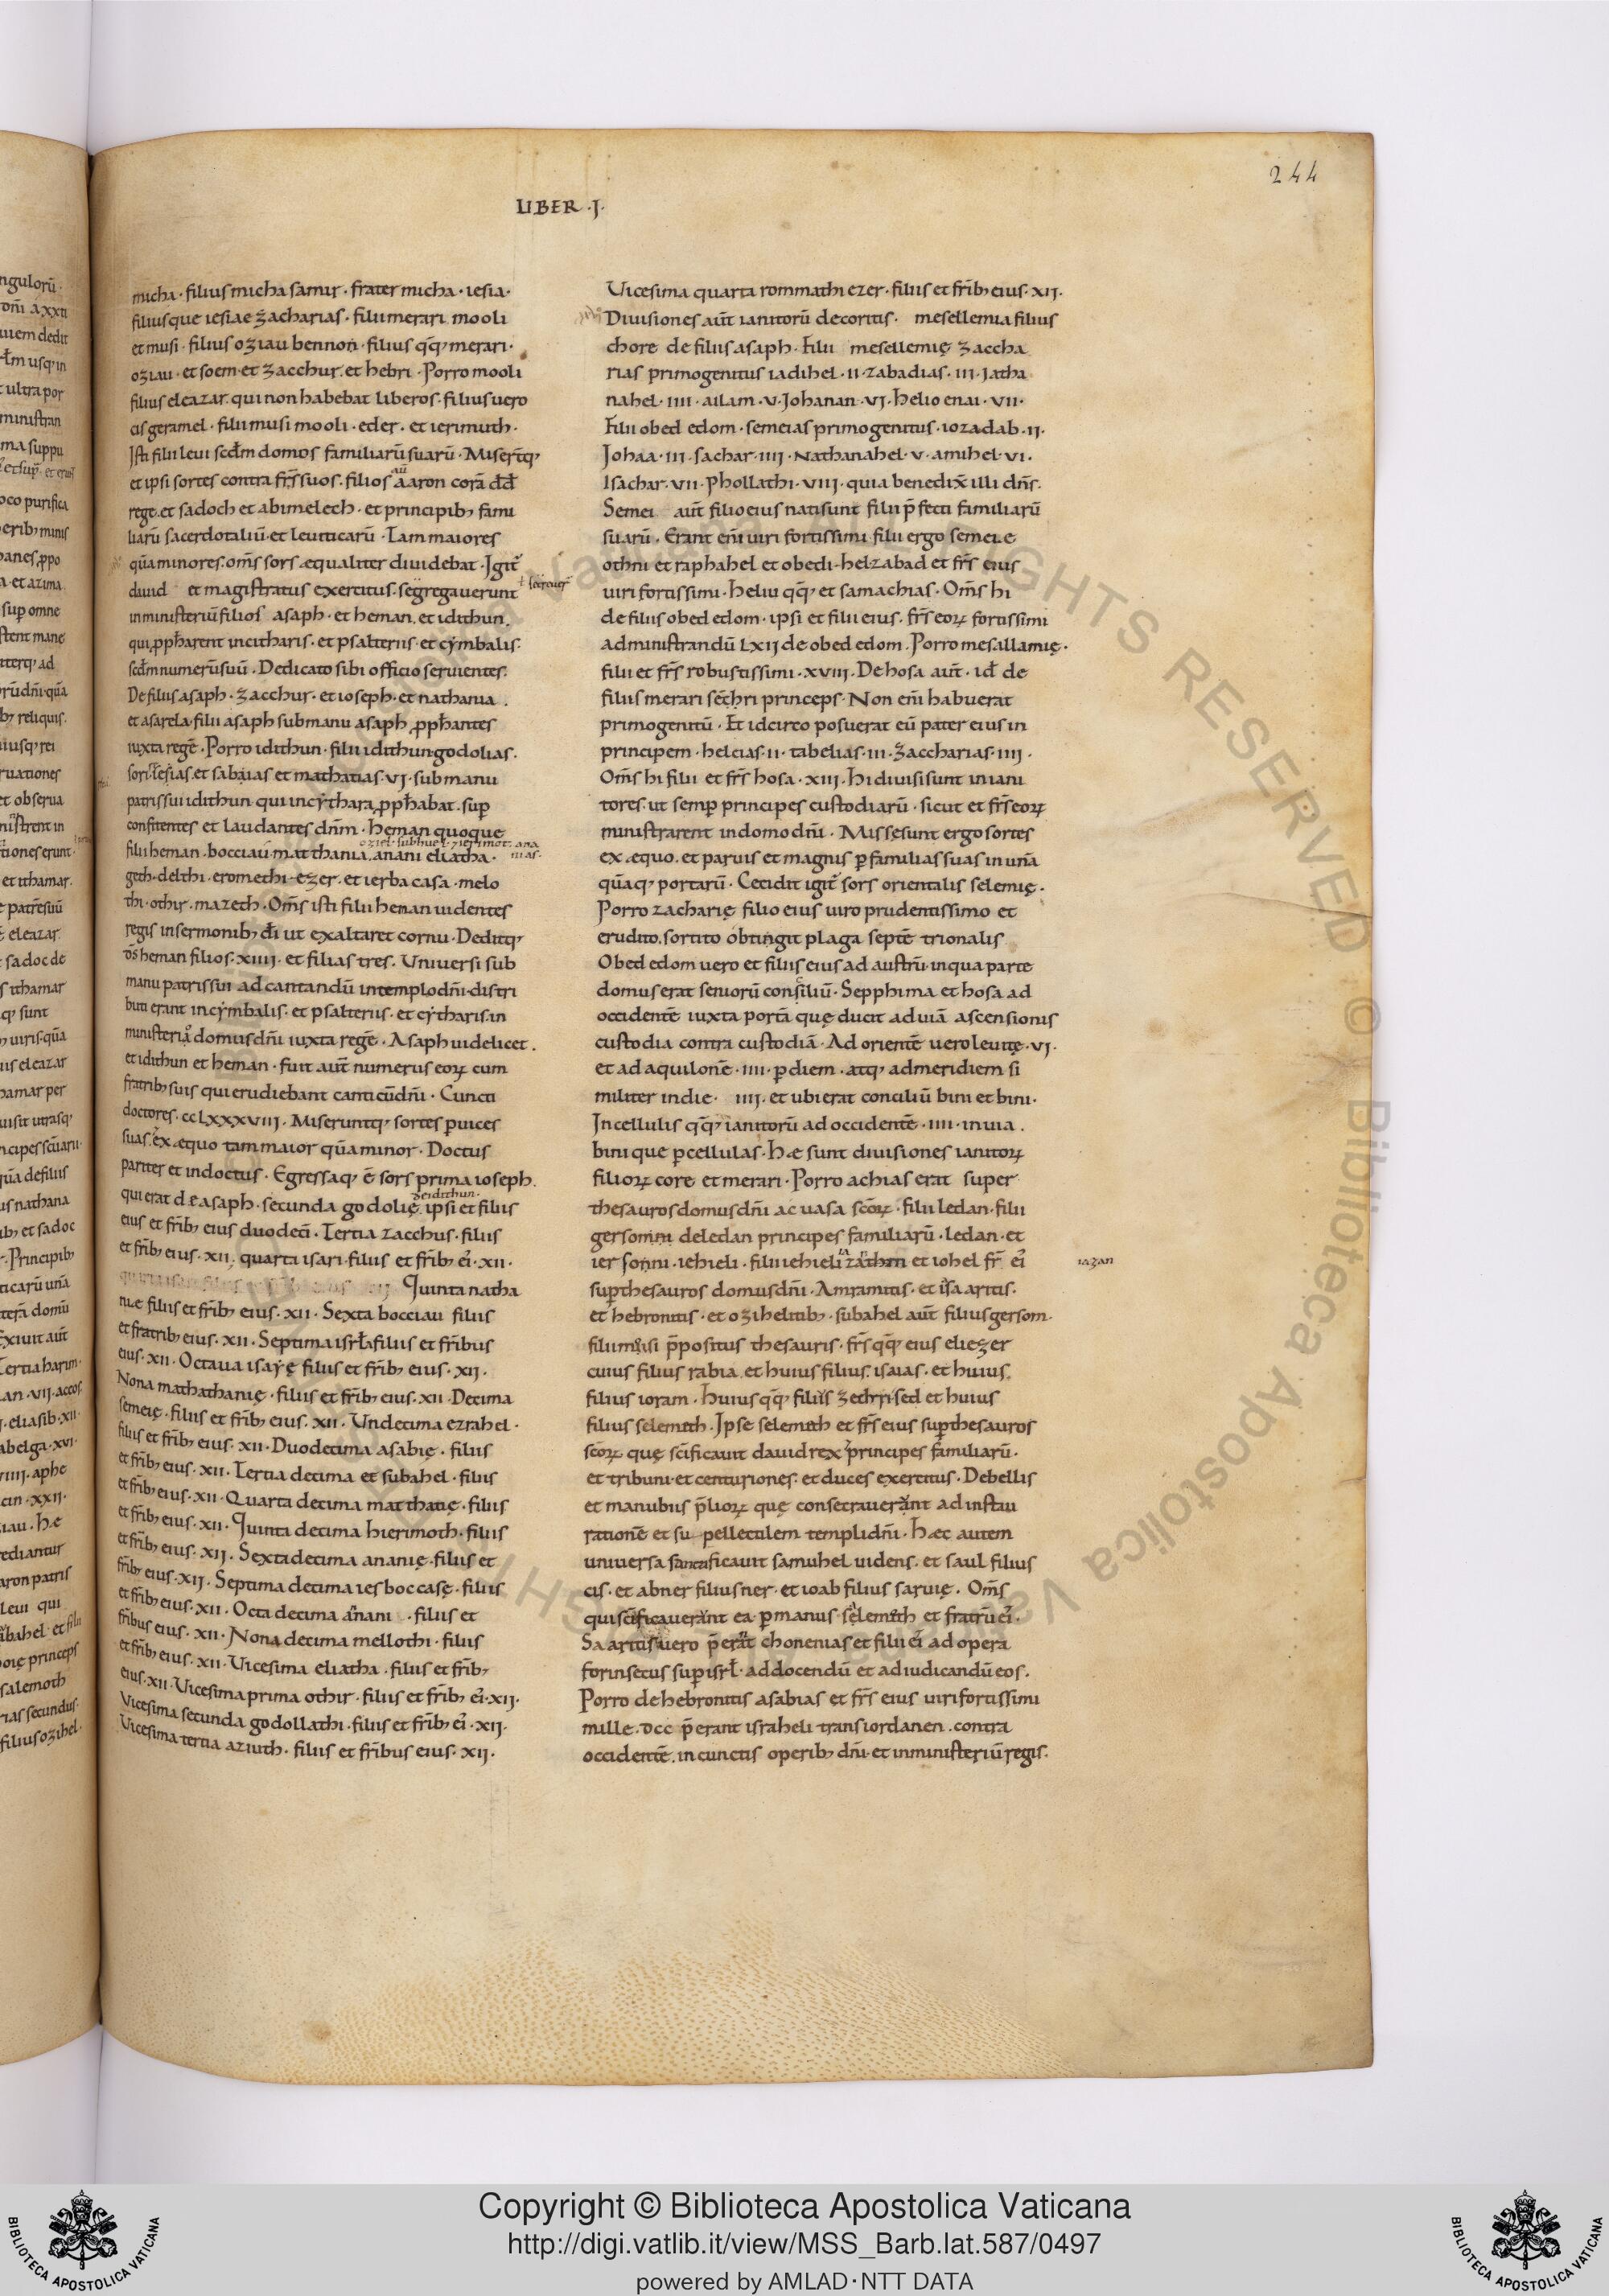 244
LIBER ·I·
micha · filius micha samir · frater micha · iesia ·
filiusque iesiae zacharias · filii merari mooli
et musi · filius oziau bennon · filius qq; merari ·
oziau · et soem · et zacchur · et hebri · Porro mooli
filius eleazar · qui non habebat liberos · filius uero
cis geramel · filii musi mooli · eder · et ierimuth ·
Isti filii leui scdm domos familiarū suarū · Misertq;
et ipsi sortes contra frs̄ suos · filios aaron corā dd̄
rege · et sadoch et abimelech · et principib; fami
liarū sacerdotaliū · et leuiticarū · Tam maiores
quā minores · oms̄ sors æqualiter diuidebat · Igit̄
dauid et magistratus exercitus · segregauerunt
in ministeriū filios asaph · et heman · et idithun ·
qui ꝓph̄arent in citharis · et psalteriis · et cymbalis ·
scdm numerū suū · Dedicato sibi officio seruientes ·
De filiis asaph · zacchur · et ioseph · et nathania ·
et asarela · filii asaph sub manu asaph ꝓph̄antes
iuxta regē · Porro idithun · filii idithun · godolias ·
sori · iesias · et sabaias et mathatias · VI · sub manu
patris sui idithun · qui in cythara ꝓph̄abat · sup̄
confitentes et laudantes dn̄m · heman quoque
oziel · subhuel · ierimot · ana
nias ·
filii heman · bocciau · matthania · anani eliatha ·
geth · delthi · eromethi · ezer · et ierba casa · melo
thi · othir · mazeth · Oms̄ isti filii heman uidentes
regis in sermonib; dī ut exaltaret cornu · Deditq;
ds̄ heman filios · XIIII · et filias tres · Uniuersi sub
manu patris sui ad cantandū in templo dn̄i · distri
buti erant in cymbalis · et psalteriis · et cytharis · in
ministeria domus dn̄i iuxta regē · Asaph uidelicet ·
et idithun et heman · fuit aut̄ numerus eoꝝ cum
fratrib; suis qui erudiebant canticū dn̄i · Cuncti
doctores · CCLXXXVIII · Miseruntq; sortes ꝑ uices
suas · ex æquo tam maior quā minor · Doctus
pariter et indoctus · Egressaq; ē sors prima ioseph ·
de idithun ·
qui erat de asaph · secunda godolię · ipsi et filiis
eius et frīb; eius duodeci̅ · Tertia zacchus · filiis
et frīb; eius · XII · quarta isari · filiis et frīb; ei᾿ · XII ·
Quinta natha
nie filiis et frīb; eius · XII · Sexta bocciau filiis
et fratrib; eius · XII · Septima isrła filiis et frībus
eius · XII · Octaua isaye̜ filiis et frīb; eius · XII ·
Nona mathathanię · filiis et frīb; eius · XII · Decima
semeię · filiis et frīb; eius · XII · Undecima ezrahel ·
filiis et frīb; eius · XII · Duodecima asabię · filiis
et frīb; eius · XII · Tertia decima et subahel · filiis
et frīb; eius · XII · Quarta decima matthatię · filiis
et frīb; eius · XII · Quinta decima hierimoth · filiis
et frīb; eius · XII · Sexta decima ananię · filiis et
frīb; eius · XII · Septima decima ies boccase̜ · filiis
et frīb; eius · XII · Octa decima anani · filiis et
frībus eius · XII · Nona decima mellothi · filiis
et frīb; eius · XII · Vicesima eliatha · filiis et frīb;
eius · XII · Vicesima prima othir · filiis et frīb; ei᾿ · XII ·
Vicesima secunda godollathi · filiis et frīb; ei᾿ · XII ·
Vicesima tertia aziuth · filiis et frībus eius · XII ·
Vicesima quarta rommathi ezer · filiis et frīb; eius · XII ·
Diuisiones aut̄ ianitorū de coritis · mesellemia filius
chore de filiis asaph · Filii mesellemię zaccha
rias primogenitus iadihel · II · zabadias · III · Jatha
nahel · IIII · ailam · V · Johanan · VI · helioenai · VII ·
Filii obed edom · semeias primogenitus · iozadab · II ·
Johaa · III · sachar · IIII · Nathanahel · V · amihel · VI ·
Isachar · VII · Phollathi · VIII · quia benedix̄ illi dn̄s ·
Semei aut̄ filio eius nati sunt filii p̄fecti familiarū
suarū · Erant eni̅ uiri fortissimi filii ergo semeie
othni et raphahel et obedi · helzabad et frs̄ eius
uiri fortissimi · heliu qq; et samachias · Oms̄ hi
de filiis obed edom · ipsi et filii eius · frs̄ eoꝝ fortissimi
administrandū LXII de obed edom · Porro mesallamię ·
filii et frs̄ robustissimi · XVIII · De hosa aut̄ · id̄ de
filiis merari sechri princeps · Non eni̅ habuerat
primogenitū · Et idcirco posuerat eū pater eius in
principem · helcias · II · tabelias · III · zaccharias · IIII ·
Oms̄ hi filii et frs̄ hosa · XIII · Hi diuisi sunt in iani
tores · ut semꝑ principes custodiarū · sicut et frs̄ eoꝝ
ministrarent in domo dn̄i · Missę sunt ergo sortes
ex æquo · et paruis et magnis ꝑ familias suas in unā
quāq; portarū · Cecidit igit̄ sors orientalis selemię ·
Porro zacharię filio eius uiro prudentissimo et
erudito · sortito obtingit plaga septē trionalis
Obed edom uero et filiis eius ad austrū · in qua parte
domus erat seniorū consiliū · Sepphima et hosa ad
occidentē iuxta portā quę ducit ad uiā ascensionis
custodia contra custodiā · Ad orientē uero leuitę · VI ·
et ad aquilonē · IIII · ꝑ diem · atq; ad meridiem si
militer in die · IIII · et ubi erat conciliū bini et bini ·
In cellulis qq; ianitorū ad occidentē · IIII · in uia ·
bini que ꝑ cellulas · Hæ sunt diuisiones ianitoꝝ
filioꝝ core et merari · Porro achias erat super
thesauros domus dn̄i ac uasa scōꝝ · filii ledan · filii
gersonni de ledan principes familiarū · ledan · et
iersonni · iehieli · filii iehieli zathan et iohel fr̄ ei᾿
iazan
sup̄ thesauros domus dn̄i · Amramitis · et isaaritis ·
et hebronitis · et ozihelitib; · subahel aut̄ filius gersom ·
filii moisi p̄positus thesauris · frs̄ qq; eius eliezer
cuius filius rabia · et huius filius · isaias · et huius
filius ioram · huius qq; filius zechri · sed et huius
filius selemith · Ipse selemith et frs̄ eius sup̄ thesauros
scōꝝ quę scīficauit dauid rex principes familiarū ·
et tribuni · et centuriones · et duces exercitus · De bellis
et manubiis p̄lioꝝ quę consecrauerant ad instau
rationē et supellectilem templi dn̄i · Hæc autem
uniuersa sanctificauit samuhel uidens · et saul filius
cis · et abner filius ner · et ioab filius saruię · Oms̄
qui scīficauerant ea · ꝑ manus selemith et fratrū ei᾿ ·
Saaritis uero p̄erat chonenias et filii ei᾿ ad opera
forinsecus sup̄ isrł · ad docendū et ad iudicandū eos ·
Porro de hebronitis asabias et frs̄ eius uiri fortissimi
mille · DCC p̄erant israheli trans iordanen · contra
occidentē · in cunctis operib; dn̄i · et in ministeriū regis ·
Copyright © Biblioteca Apostolica Vaticana
http://digi.vatlib.it/view/MSS_Barb.lat.587/0497
powered by AMLAD·NTT DATA
BIBLIOTECA APOSTOLICA VATICANA
BIBLIOTECA APOSTOLICA VATICANA